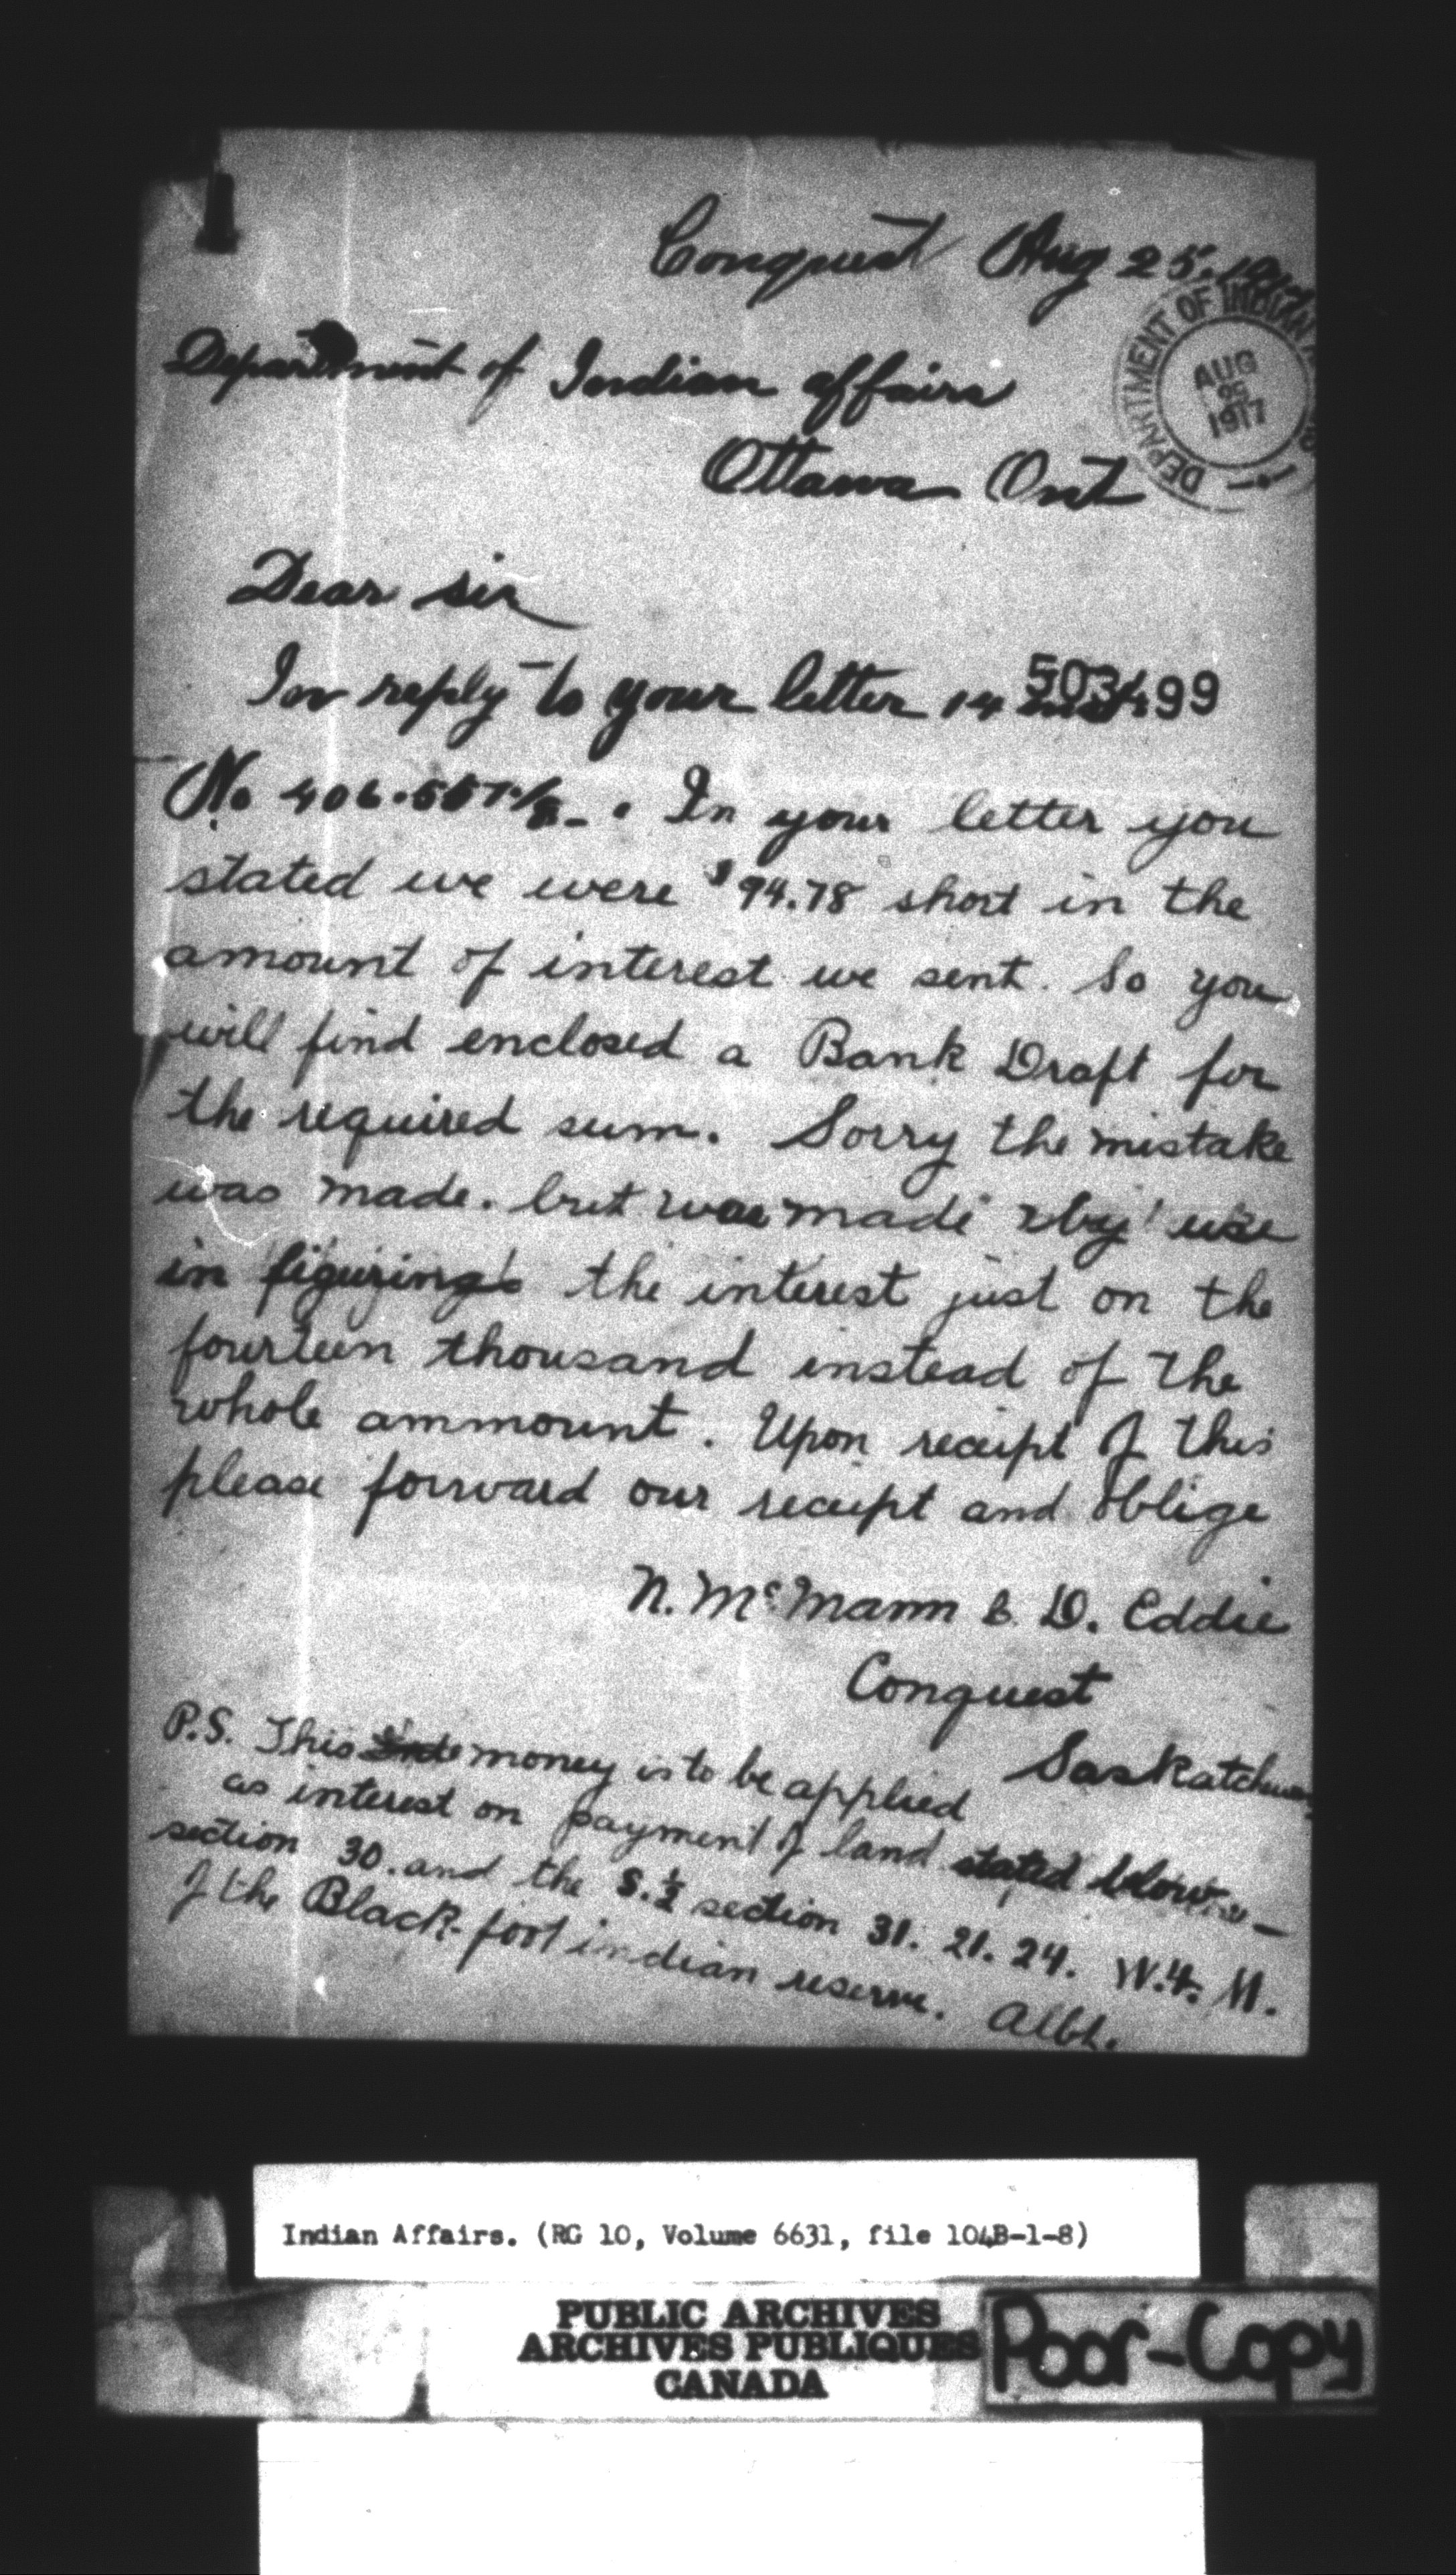 Conquest Aug 25. 1917
DEPARTMENT OF INDIAN
AUG
25
1917
Department of Indian affairs
Ottawa Ont
Dear sir
In reply to your letter 14 inst
503499
No 406.557 1/8 . In your letter you
stated we were $94.78 short in the
amount of interest we sent. So you
will find enclosed a Bank Draft for
the required sum. Sorry the mistake
was made. but was made by us
in figuring the interest just on the
fourteen thousand instead of the
whole ammount. Upon receipt of this
please forward our receipt and oblige
N. McMann & D. Eddie
Conquest
Saskatchewan
P.S. This money is to be applied
as interest on payment of land stated below -
section 30. and the S.½ section 31. 21. 24. W.4. M.
of the Black-foot indian reserve. Alta.
Indian Affairs. (RG 10, Volume 6631, file 104B-1-8)
PUBLIC ARCHIVES
ARCHIVES PUBLIQUES
CANADA
Poor-Copy